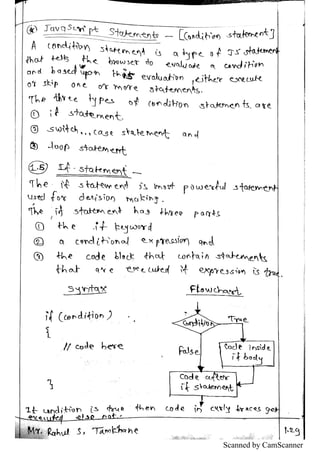 * JavaScript Statements - [Condition statement]
A condition statement is a type of JS statement
that tells the browser to evaluate a condition
and based upon this evaluation, either execute
or skip one or more statements.
The three types of condition statements are
① if statement.
② switch...case statement and
③ loop statement
1.5) If-statement -
The if statement is most powerful statement
used for decision making.
The if statement has three parts
① the if keyword
② a conditional expression and
③ the code block that contain statements
that are executed if expression is true.
Syntax Flowchart
if (condition)
{
// code here
}
Condition True
False
Code inside
if body
Code after
if statement
If condition is true then code in curly braces get
executed else not.
Mr. Rahul S. Tamkhane 1.29
Scanned by CamScanner